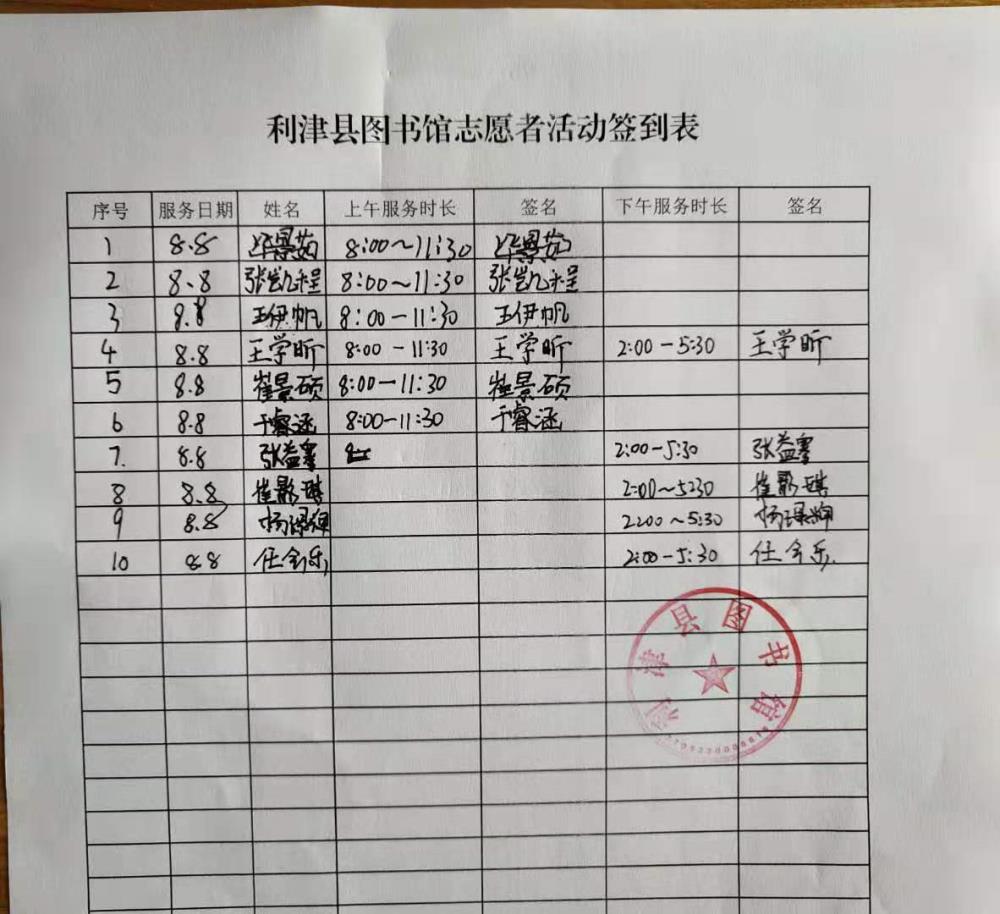 利津县图书馆志愿者活动签到表
序号 服务日期 姓名 上午服务时长 签名 下午服务时长 签名
1 8.8 毕景茹 8:00~11:30 毕景茹
2 8.8 张凯程 8:00~11:30 张凯程
3 8.8 王伊帆 8:00-11:30 王伊帆
4 8.8 王学昕 8:00-11:30 王学昕 2:00-5:30 王学昕
5 8.8 崔景硕 8:00-11:30 崔景硕
6 8.8 于睿涵 8:00-11:30 于睿涵
7. 8.8 张益 2:00-5:30 张益
8 8.8 崔 琪 2:00~5:30 崔 琪
9 8.8 杨 2:00~5:30 杨
10 8.8 任 乐 2:00-5:30 任 乐
利津县图书馆